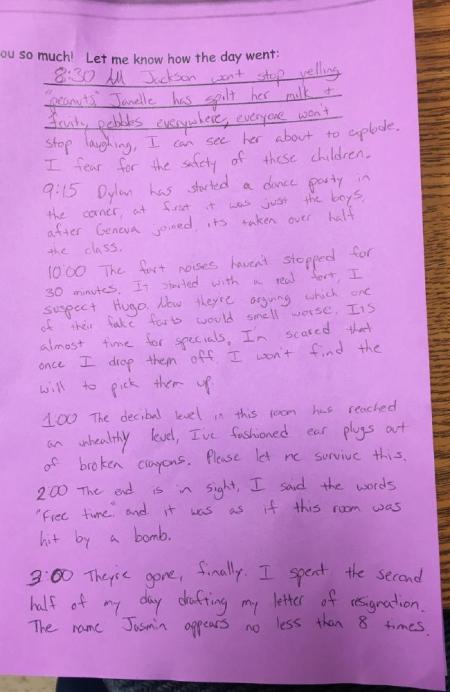 ou so much! Let me know how the day went:
8:30 AM Jackson won't stop yelling
"peanuts," Janelle has spilt her milk +
fruity pebbles everywhere, everyone won't
stop laughing, I can see her about to explode.
I fear for the safety of these children.
9:15 Dylan has started a dance party in
the corner, at first it was just the boys,
after Geneva joined, its taken over half
the class.
10:00 The fart noises haven't stopped for
30 minutes. It started with a real fart, I
suspect Hugo. Now they're arguing which one
of their fake farts would smell worse. Its
almost time for specials, I'm scared that
once I drop them off I won't find the
will to pick them up.
1:00 The decibal level in this room has reached
an unhealthy level, I've fashioned ear plugs out
of broken crayons. Please let me survive this.
2:00 The end is in sight, I said the words
"Free time" and it was as if this room was
hit by a bomb.
3:00 They're gone, finally. I spent the second
half of my day drafting my letter of resignation.
The name Jasmin appears no less than 8 times.